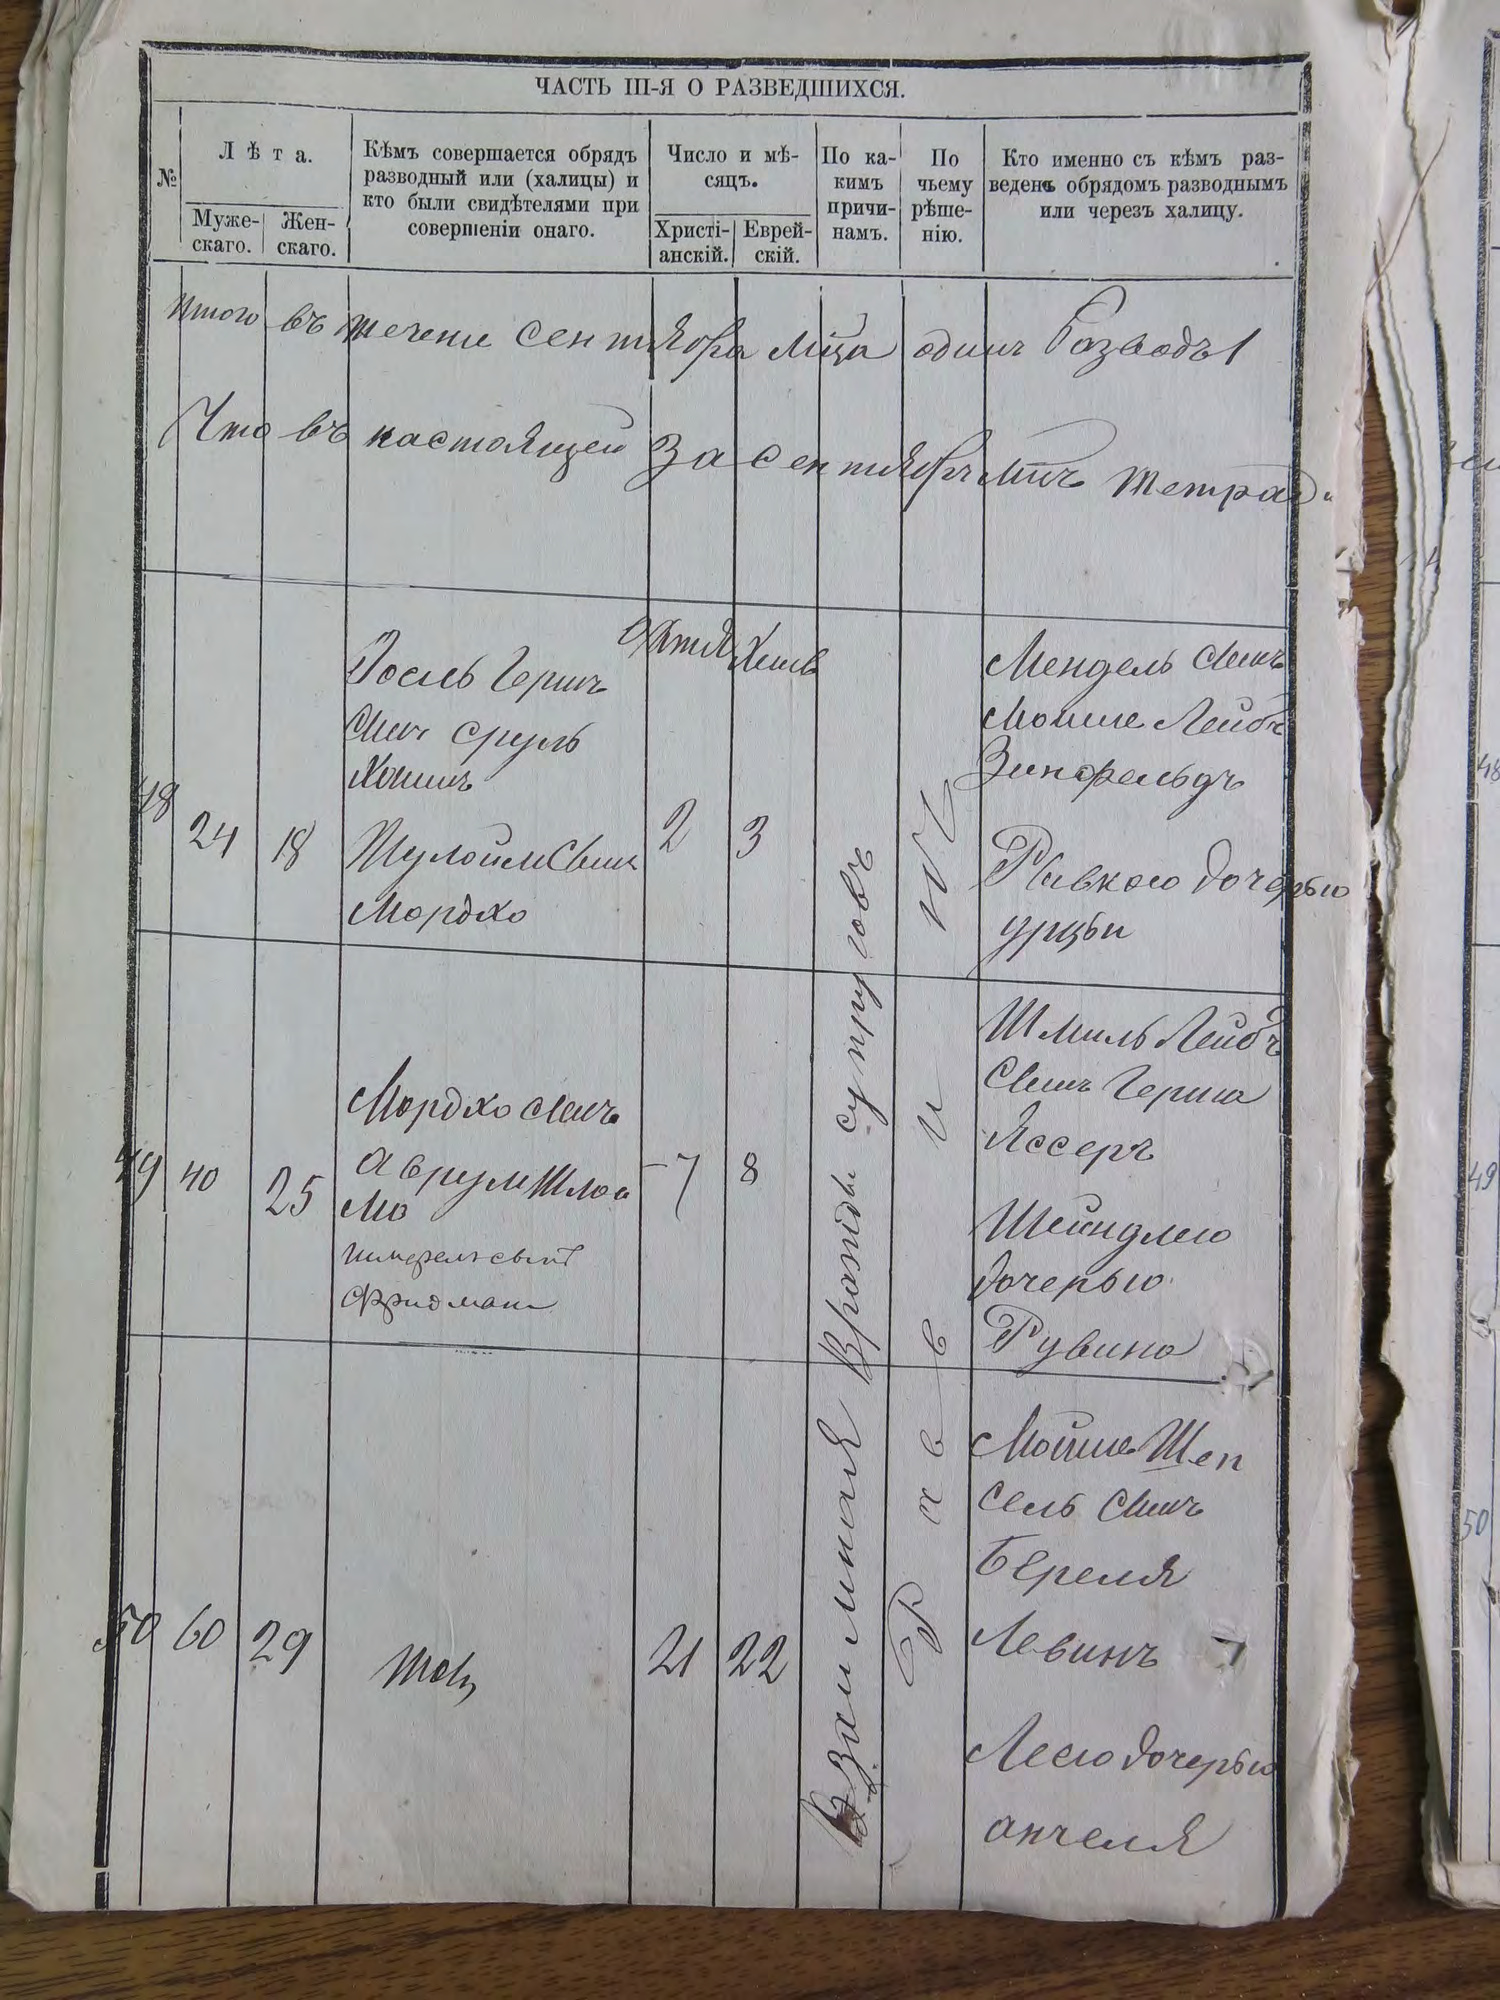 ЧАСТЬ III-Я О РАЗВЕДШИХСЯ.
№
Лѣта.
Муже-
скаго.
Жен-
скаго.
Кѣмъ совершается обрядъ
разводный или (халицы) и
кто были свидѣтелями при
совершеніи онаго.
Число и мѣ-
сяцъ.
Христі-
анскій.
Еврей-
скій.
По ка-
кимъ
причи-
намъ.
По
чьему
рѣше-
нію.
Кто именно съ кѣмъ раз-
веденъ обрядомъ разводнымъ
или черезъ халицу.
Итого въ течени сентября мца одинъ Разводъ 1
Что въ настоящей За сентябрь тетрад
48
24
18
Іосль Герш
Срулъ
Шулойм
Мордхо
Октя
2
Хешв
3
Взаимная Вражды супруговъ
Раввинъ
Мендель
Мойше Лейбъ
Зинфельдъ
Ривкою дочерью
урцы
49
40
25
Мордхо
Аврум Шлои
мо
Фридман
7
8
Шмиль Лейбъ
Герша
Яссеръ
Шейндлею
дочерью
Рувина
50
60
29
тотъ
21
22
Мойше Шеп
сель
Береля
Левинъ
Лесю дочерью
анчеля
48
49
50